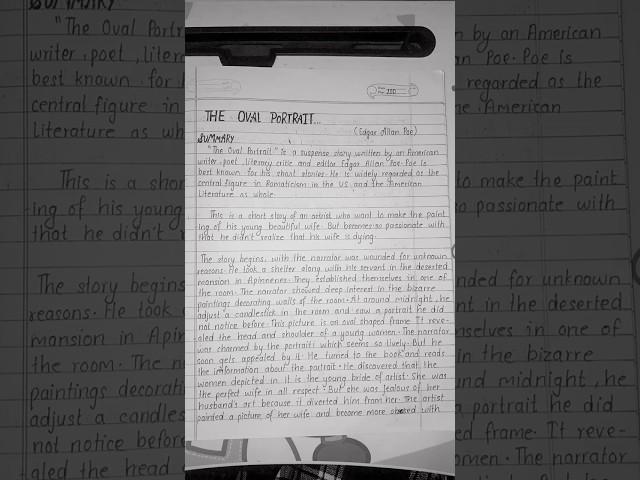 THE OVAL PORTRAIT...
(Edgar Allan Poe)
SUMMARY
"The Oval Portrait" is a suspense story written by an American
writer, poet, literary critic and editor Edgar Allan Poe. Poe is
best known for his short stories. He is widely regarded as the
central figure in Romaticism in the US and the American
Literature as whole.
This is a short story of an artist who want to make the paint
ing of his young beautiful wife. But becomes so passionate with
that he didn't realize that his wife is dying.
The story begins, with the narrator was wounded for unknown
reasons. He took a shelter along with his servant in the deserted
mansion in Apinneries. They established themselves in one of
the room. The narrator showed deep interest in the bizarre
paintings decorating walls of the room. At around midnight, he
adjust a candlestick in the room and saw a portrait he did
not notice before. This picture is on oval shaped frame. It reve-
aled the head and shoulder of a young women. The narrator
was charmed by the portrait which seems so lively. But he
soon gets appealed by it. He turned to the book and reads
the information about the portrait. He discovered that the
women depicted in it is the young bride of artist. She was
the perfect wife in all respect. But she was jealous of her
husband's art because it diverted him from her. The artist
painted a picture of her wife and become more obsessed with